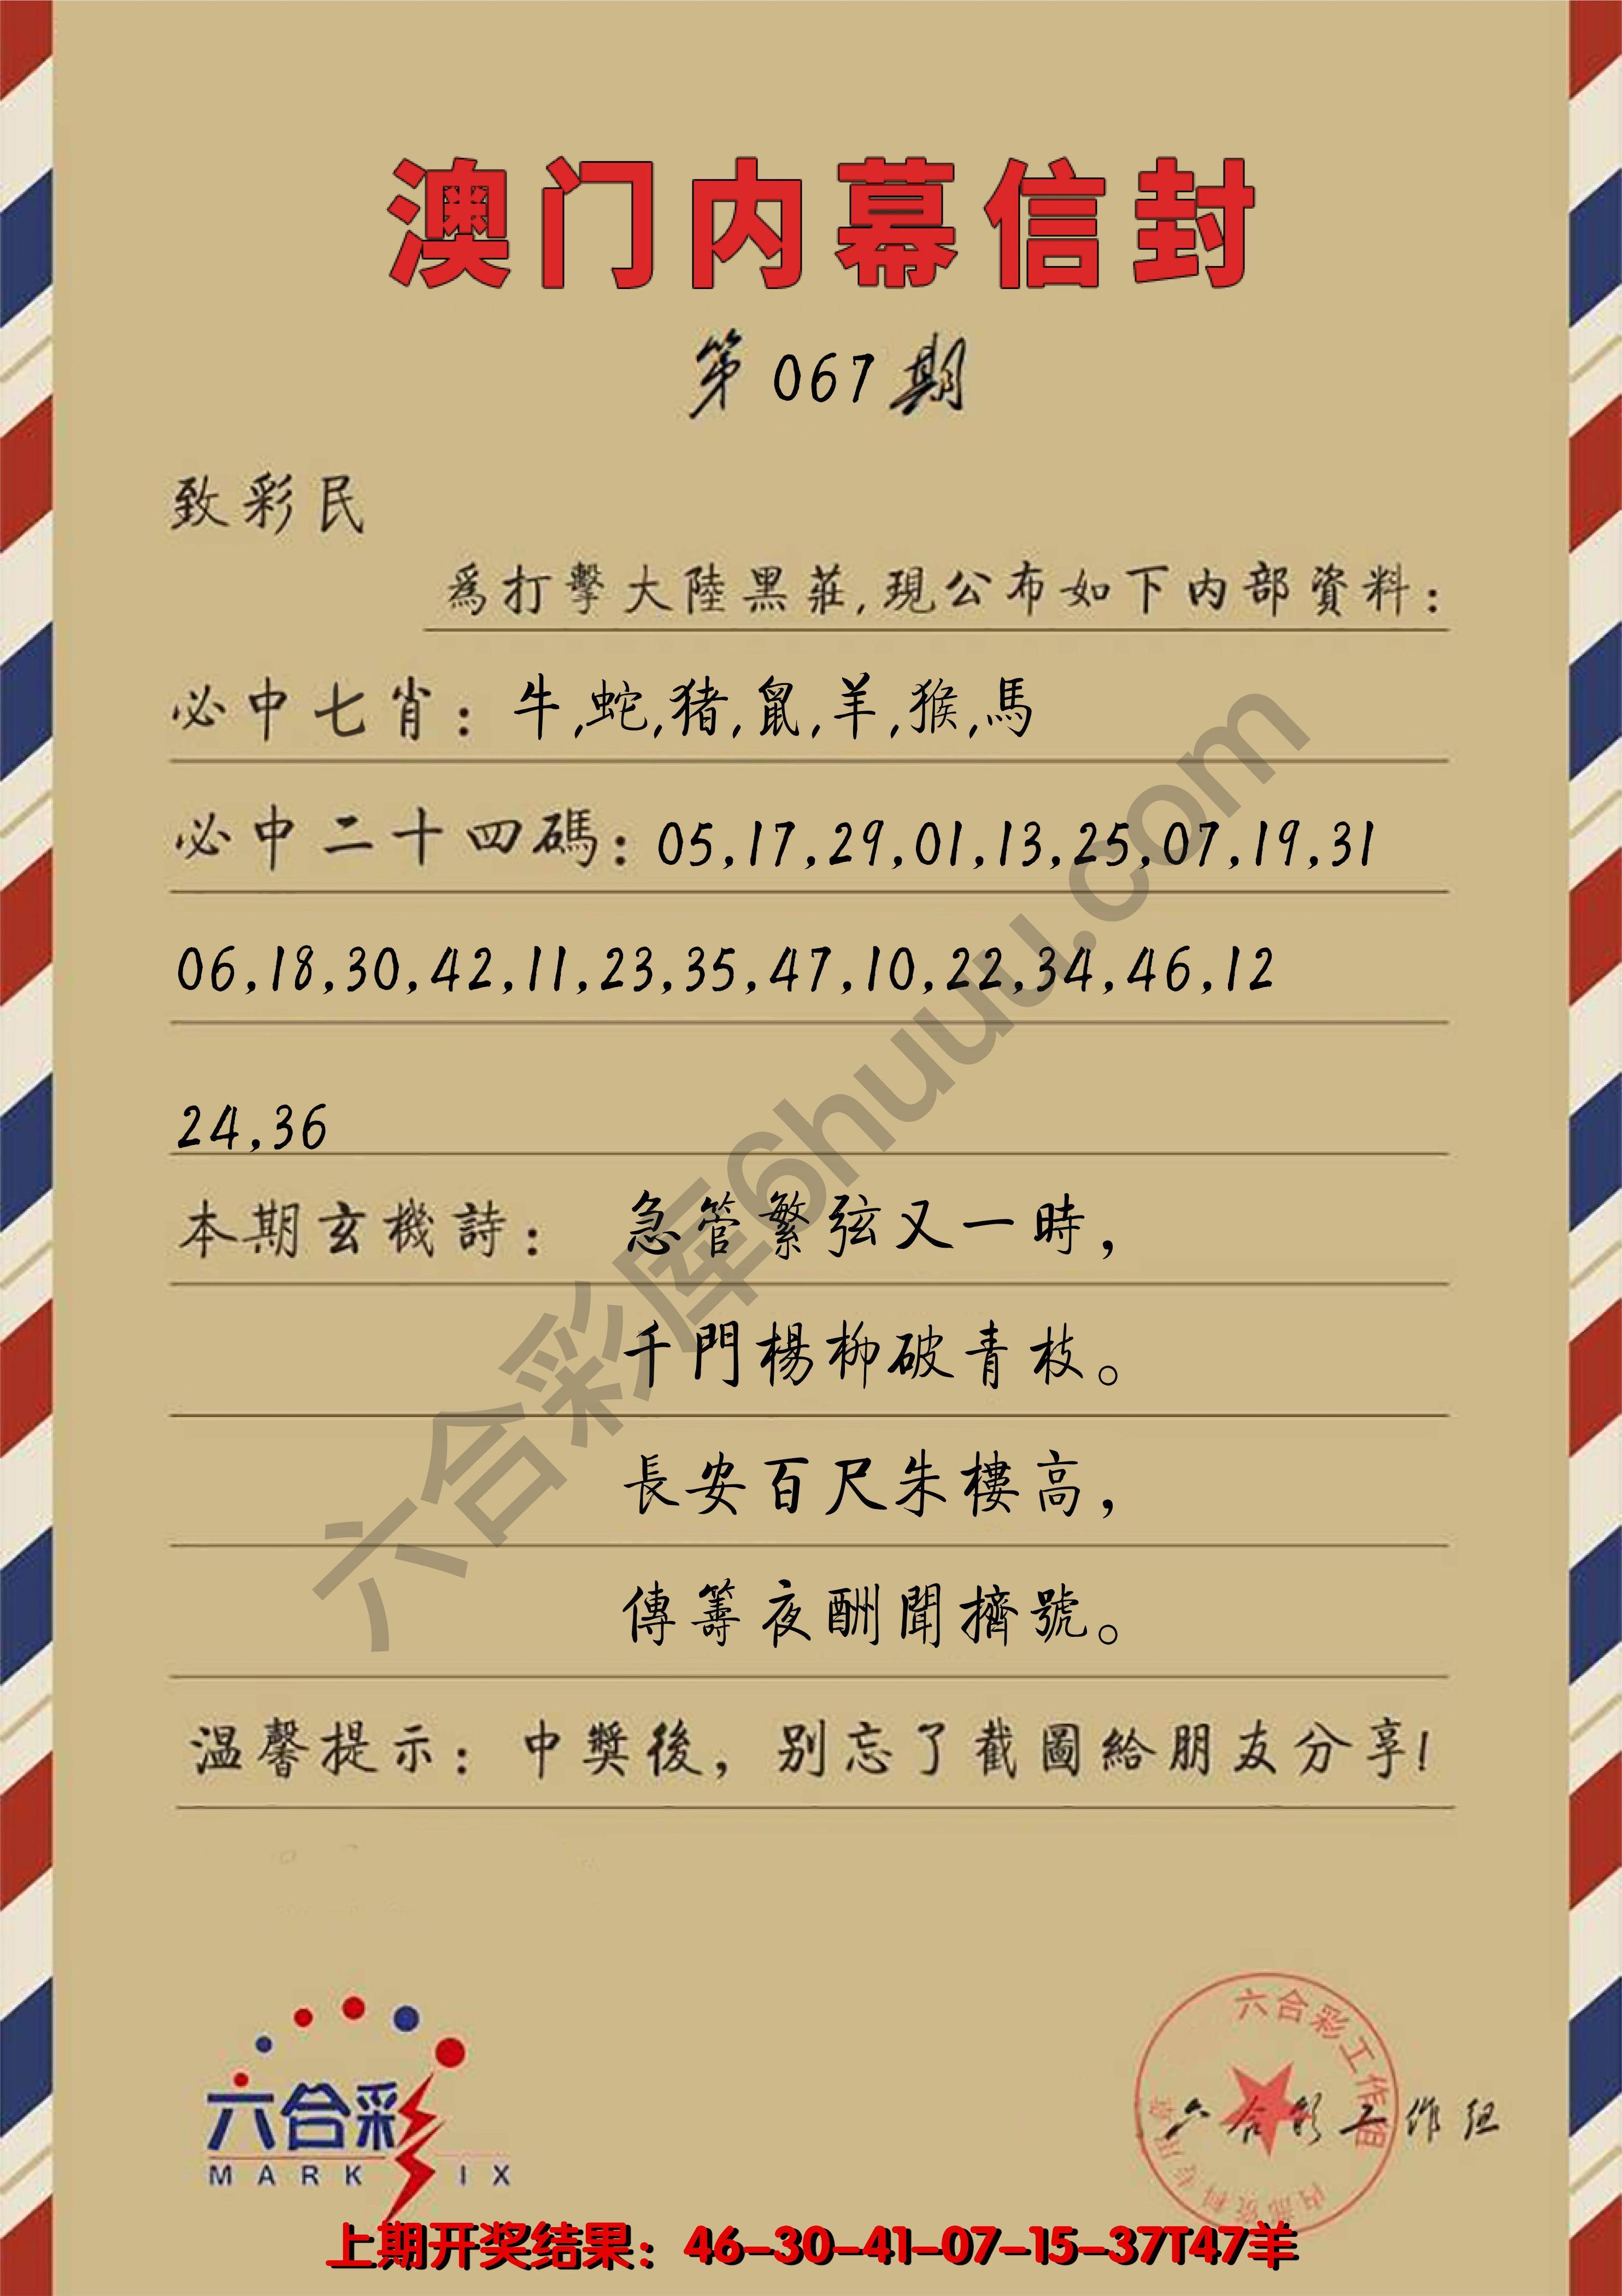 澳门内幕信封
第067期
致彩民
爲打擊大陸黑莊,現公布如下内部資料:
必中七肖:牛,蛇,猪,鼠,羊,猴,馬
必中二十四碼:05,17,29,01,13,25,07,19,31
06,18,30,42,11,23,35,47,10,22,34,46,12
24,36
本期玄機詩: 急管繁弦又一時,
千門楊柳破青枝。
長安百尺朱樓高,
傳籌夜酬聞擠號。
温馨提示:中獎後,别忘了截圖給朋友分享!
六合彩库6huuu.com
六合彩
MARK SIX
六合彩工作组
内部资料专用章
六合彩工作组
上期开奖结果:46-30-41-07-15-37T47羊